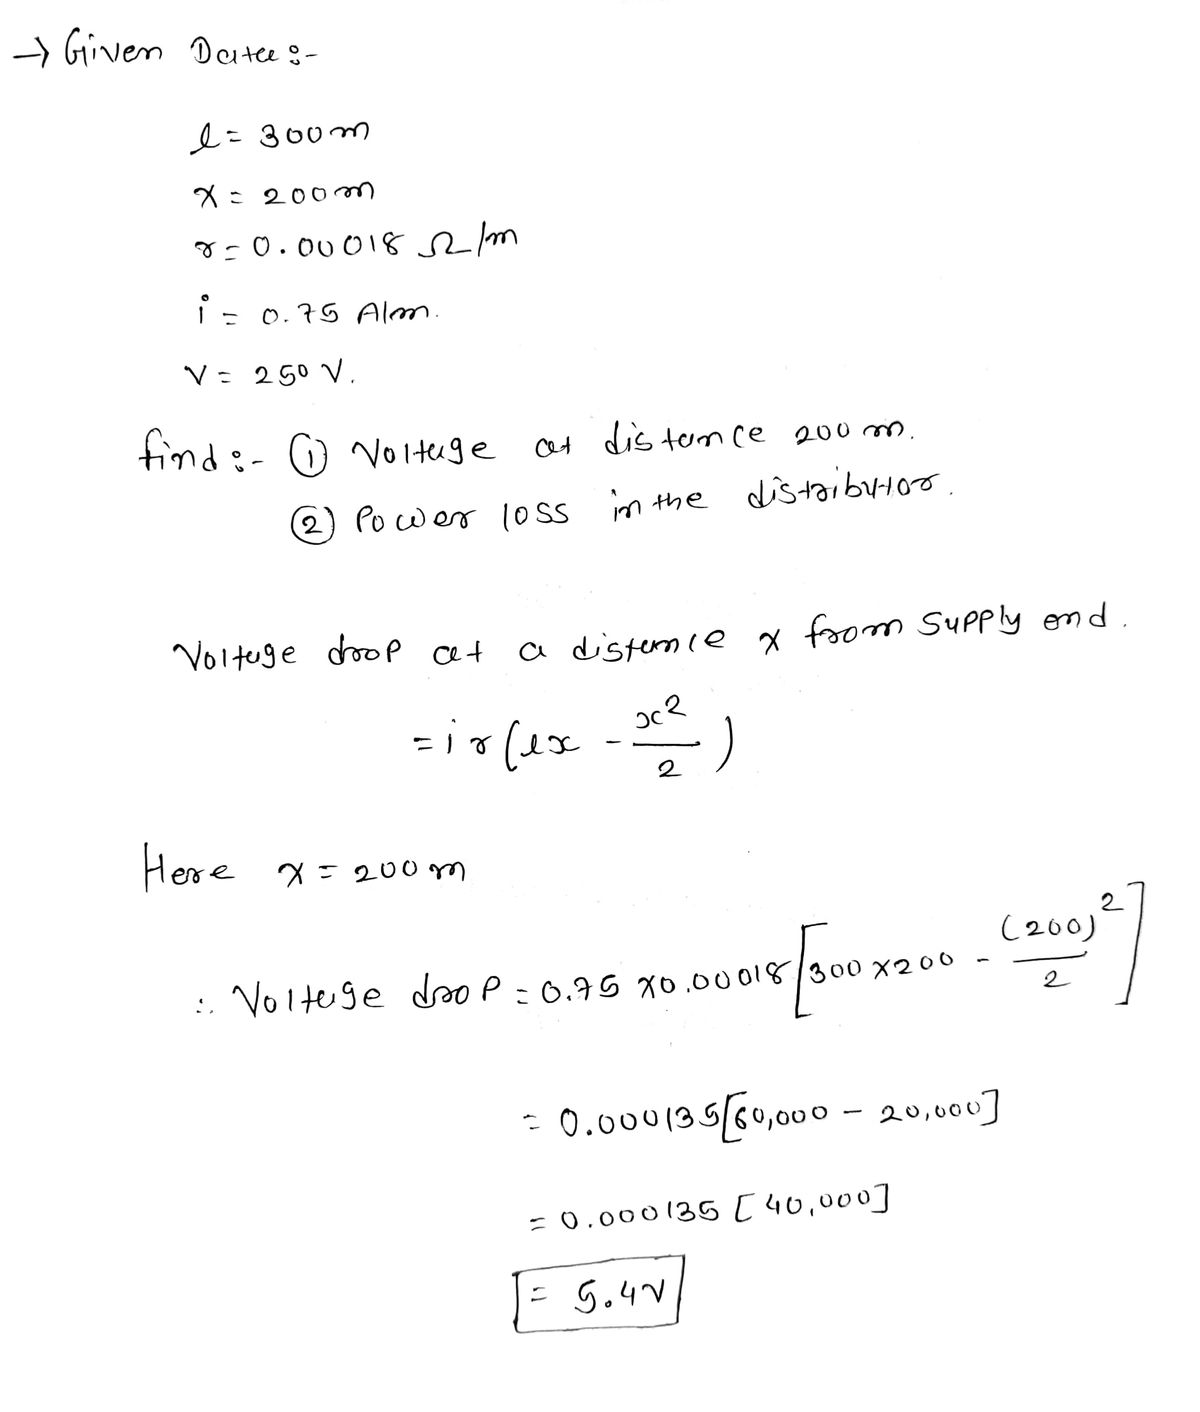 → Given Data :-
l = 300 m
x = 200 m
r = 0.00018 Ω/m
i = 0.75 A/m.
V = 250 V.
find :- ① Voltage at distance 200 m.
② Power loss in the distributor.
Voltage drop at a distance x from supply end.
= i r (lx - x²/2)
Here x = 200 m
∴ Voltage drop = 0.75 x 0.00018 [300 x 200 - (200)²/2]
= 0.000135 [60,000 - 20,000]
= 0.000135 [40,000]
= 5.4 V